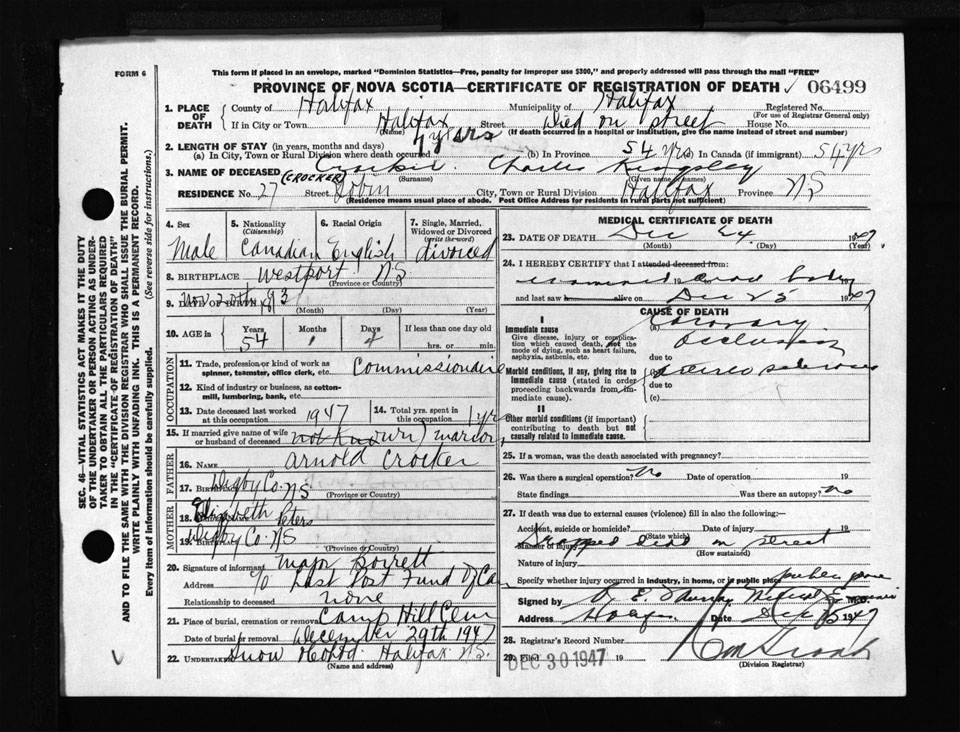 FORM 6
This form if placed in an envelope, marked "Dominion Statistics—Free, penalty for improper use $300," and properly addressed will pass through the mail "FREE"
PROVINCE OF NOVA SCOTIA—CERTIFICATE OF REGISTRATION OF DEATH 06499
1. PLACE OF DEATH County of Halifax Municipality of Halifax Registered No.
(For use of Registrar General only)
If in City or Town Halifax Street Died on street House No.
(Name) (If death occurred in a hospital or institution, give the name instead of street and number)
2. LENGTH OF STAY (in years, months and days)
(a) In City, Town or Rural Division where death occurred years (b) In Province 54 yrs (c) In Canada (if immigrant) 54 yrs
3. NAME OF DECEASED (CROCKER) Charles Kingsley
(Surname) (Given name or names)
RESIDENCE No. 27 Street City, Town or Rural Division Halifax Province NS
Residence means usual place of abode. Post Office Address for residents in rural parts not sufficient)
4. Sex 5. Nationality 6. Racial Origin 7. Single, Married,
(Citizenship) Widowed or Divorced
(write the word)
Male Canadian English divorced
8. BIRTHPLACE Westport NS
(Province or Country)
9. DATE OF BIRTH Nov
(Month) (Day) (Year)
10. AGE in Years Months Days If less than one day old
54 1 4 hrs. or min.
OCCUPATION
11. Trade, profession or kind of work as Commissionaire
spinner, teamster, office clerk, etc.
12. Kind of industry or business, as cotton-
mill, lumbering, bank, etc.
13. Date deceased last worked at this occupation 1947 14. Total yrs. spent in this occupation 1 yrs
15. If married give name of wife or husband of deceased not known
FATHER
16. Name Arnold Crocker
17. Birthplace Digby Co. NS
(Province or Country)
MOTHER
18. Elizabeth Peters
19. Birthplace Digby Co NS
(Province or Country)
20. Signature of informant Major Borrett
Address c/o Last Post Fund of Can
Relationship to deceased none
21. Place of burial, cremation or removal Camp Hill Cem
Date of burial or removal December 29th 1947
22. Undertaker Snow & Co Ltd. Halifax NS.
(Name and address)
MEDICAL CERTIFICATE OF DEATH
23. DATE OF DEATH Dec 24 1947
(Month) (Day) (Year)
24. I HEREBY CERTIFY that I attended deceased from:
examined dead body
and last saw h alive on Dec 25 1947
CAUSE OF DEATH
I
Immediate cause
Give disease, injury or complica-
tion which caused death, not the
mode of dying, such as heart failure,
asphyxia, asthenia, etc.
(a) Coronary
occlusion
due to
Morbid conditions, if any, giving rise to
immediate cause (stated in order
proceeding backwards from im-
mediate cause).
(b) arterio sclerosis
due to
(c)
II
Other morbid conditions (if important)
contributing to death but not
causally related to immediate cause.
25. If a woman, was the death associated with pregnancy?
26. Was there a surgical operation? No Date of operation 19
State findings Was there an autopsy? no
27. If death was due to external causes (violence) fill in also the following:—
Accident, suicide or homicide? Date of injury 19
(State which)
Manner of injury Dropped dead on street
(How sustained)
Nature of injury
Specify whether injury occurred in industry, in home, or in public place public place
Signed by M.D.
Address Date Dec 1947
28. Registrar's Record Number
29. Filed DEC 30 1947 19
(Division Registrar)
SEC. 46—VITAL STATISTICS ACT MAKES IT THE DUTY
OF THE UNDERTAKER OR PERSON ACTING AS UNDER-
TAKER TO OBTAIN ALL THE PARTICULARS REQUIRED
IN THE "CERTIFICATE OF REGISTRATION OF DEATH"
AND TO FILE THE SAME WITH THE DIVISION REGISTRAR WHO SHALL ISSUE THE BURIAL PERMIT.
WRITE PLAINLY WITH UNFADING INK. THIS IS A PERMANENT RECORD.
Every item of information should be carefully supplied. (See reverse side for instructions.)